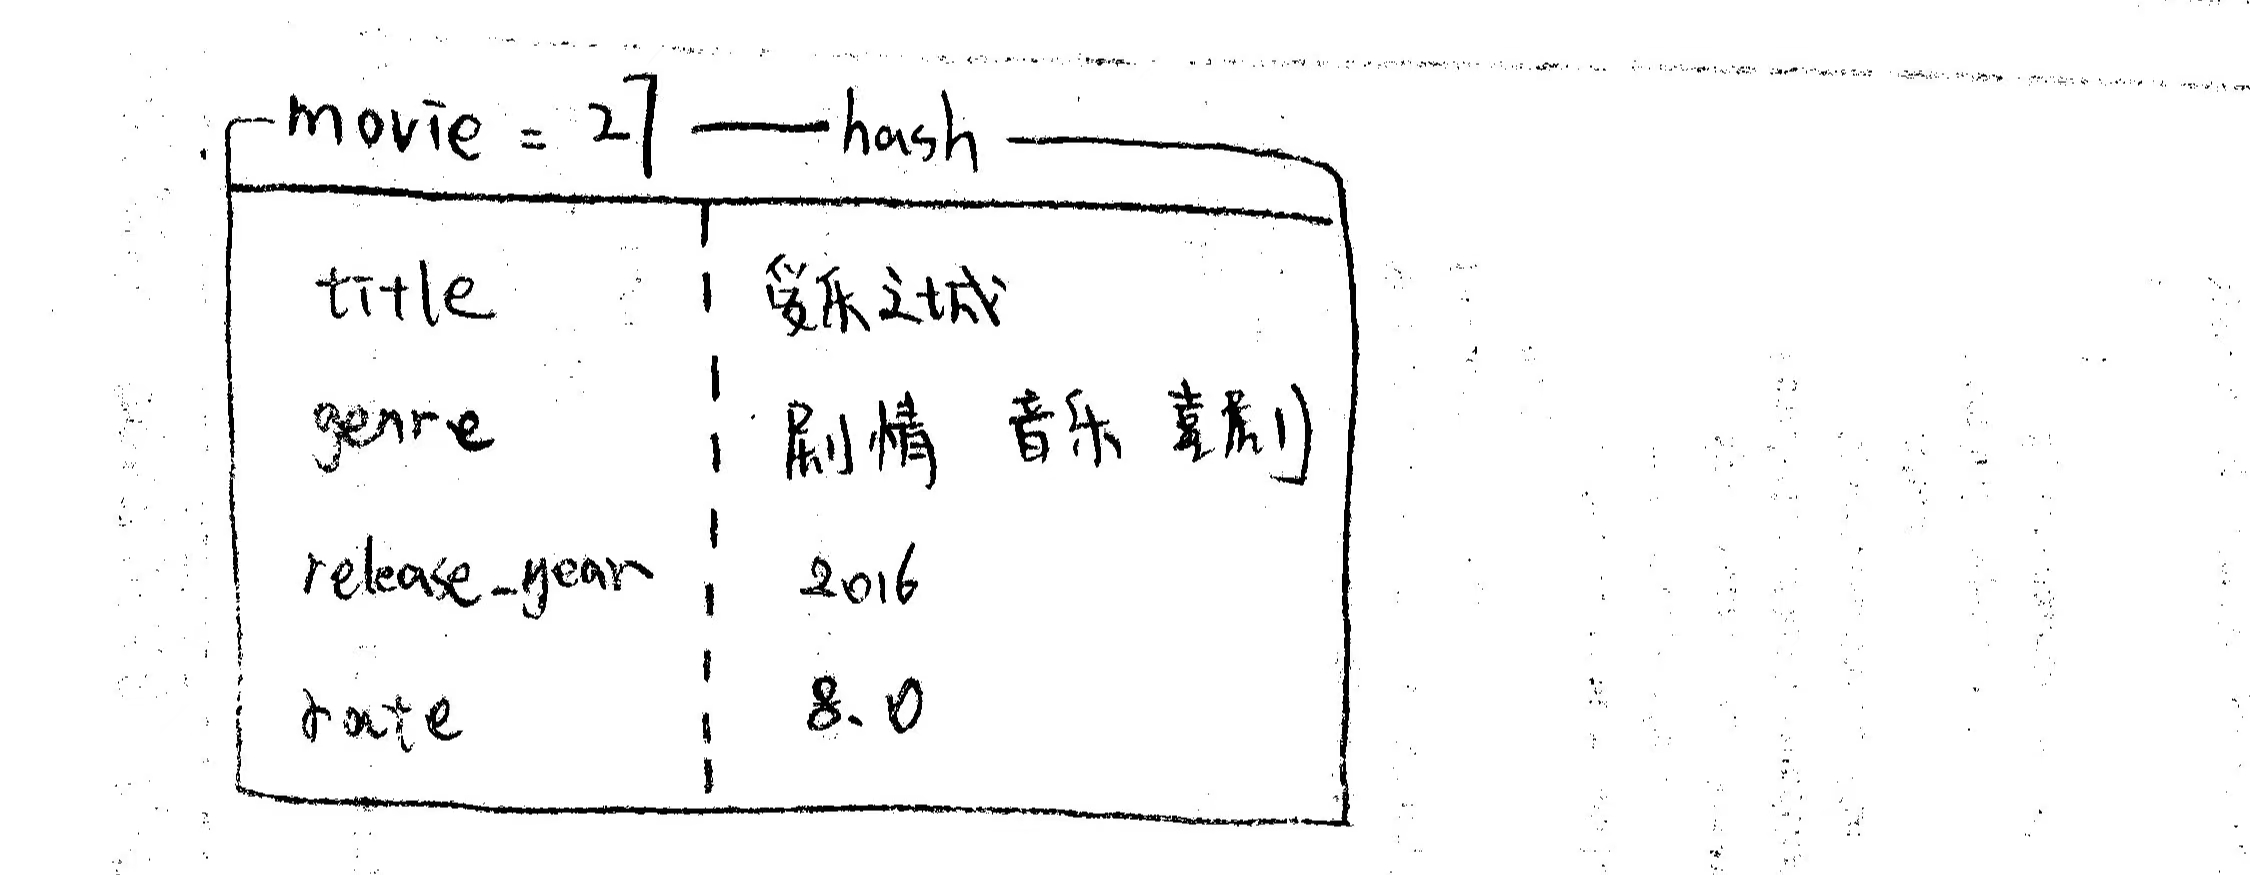 movie = 27 hash
title 爱乐之城
genre 剧情 音乐 喜剧
release_year 2016
rate 8.0